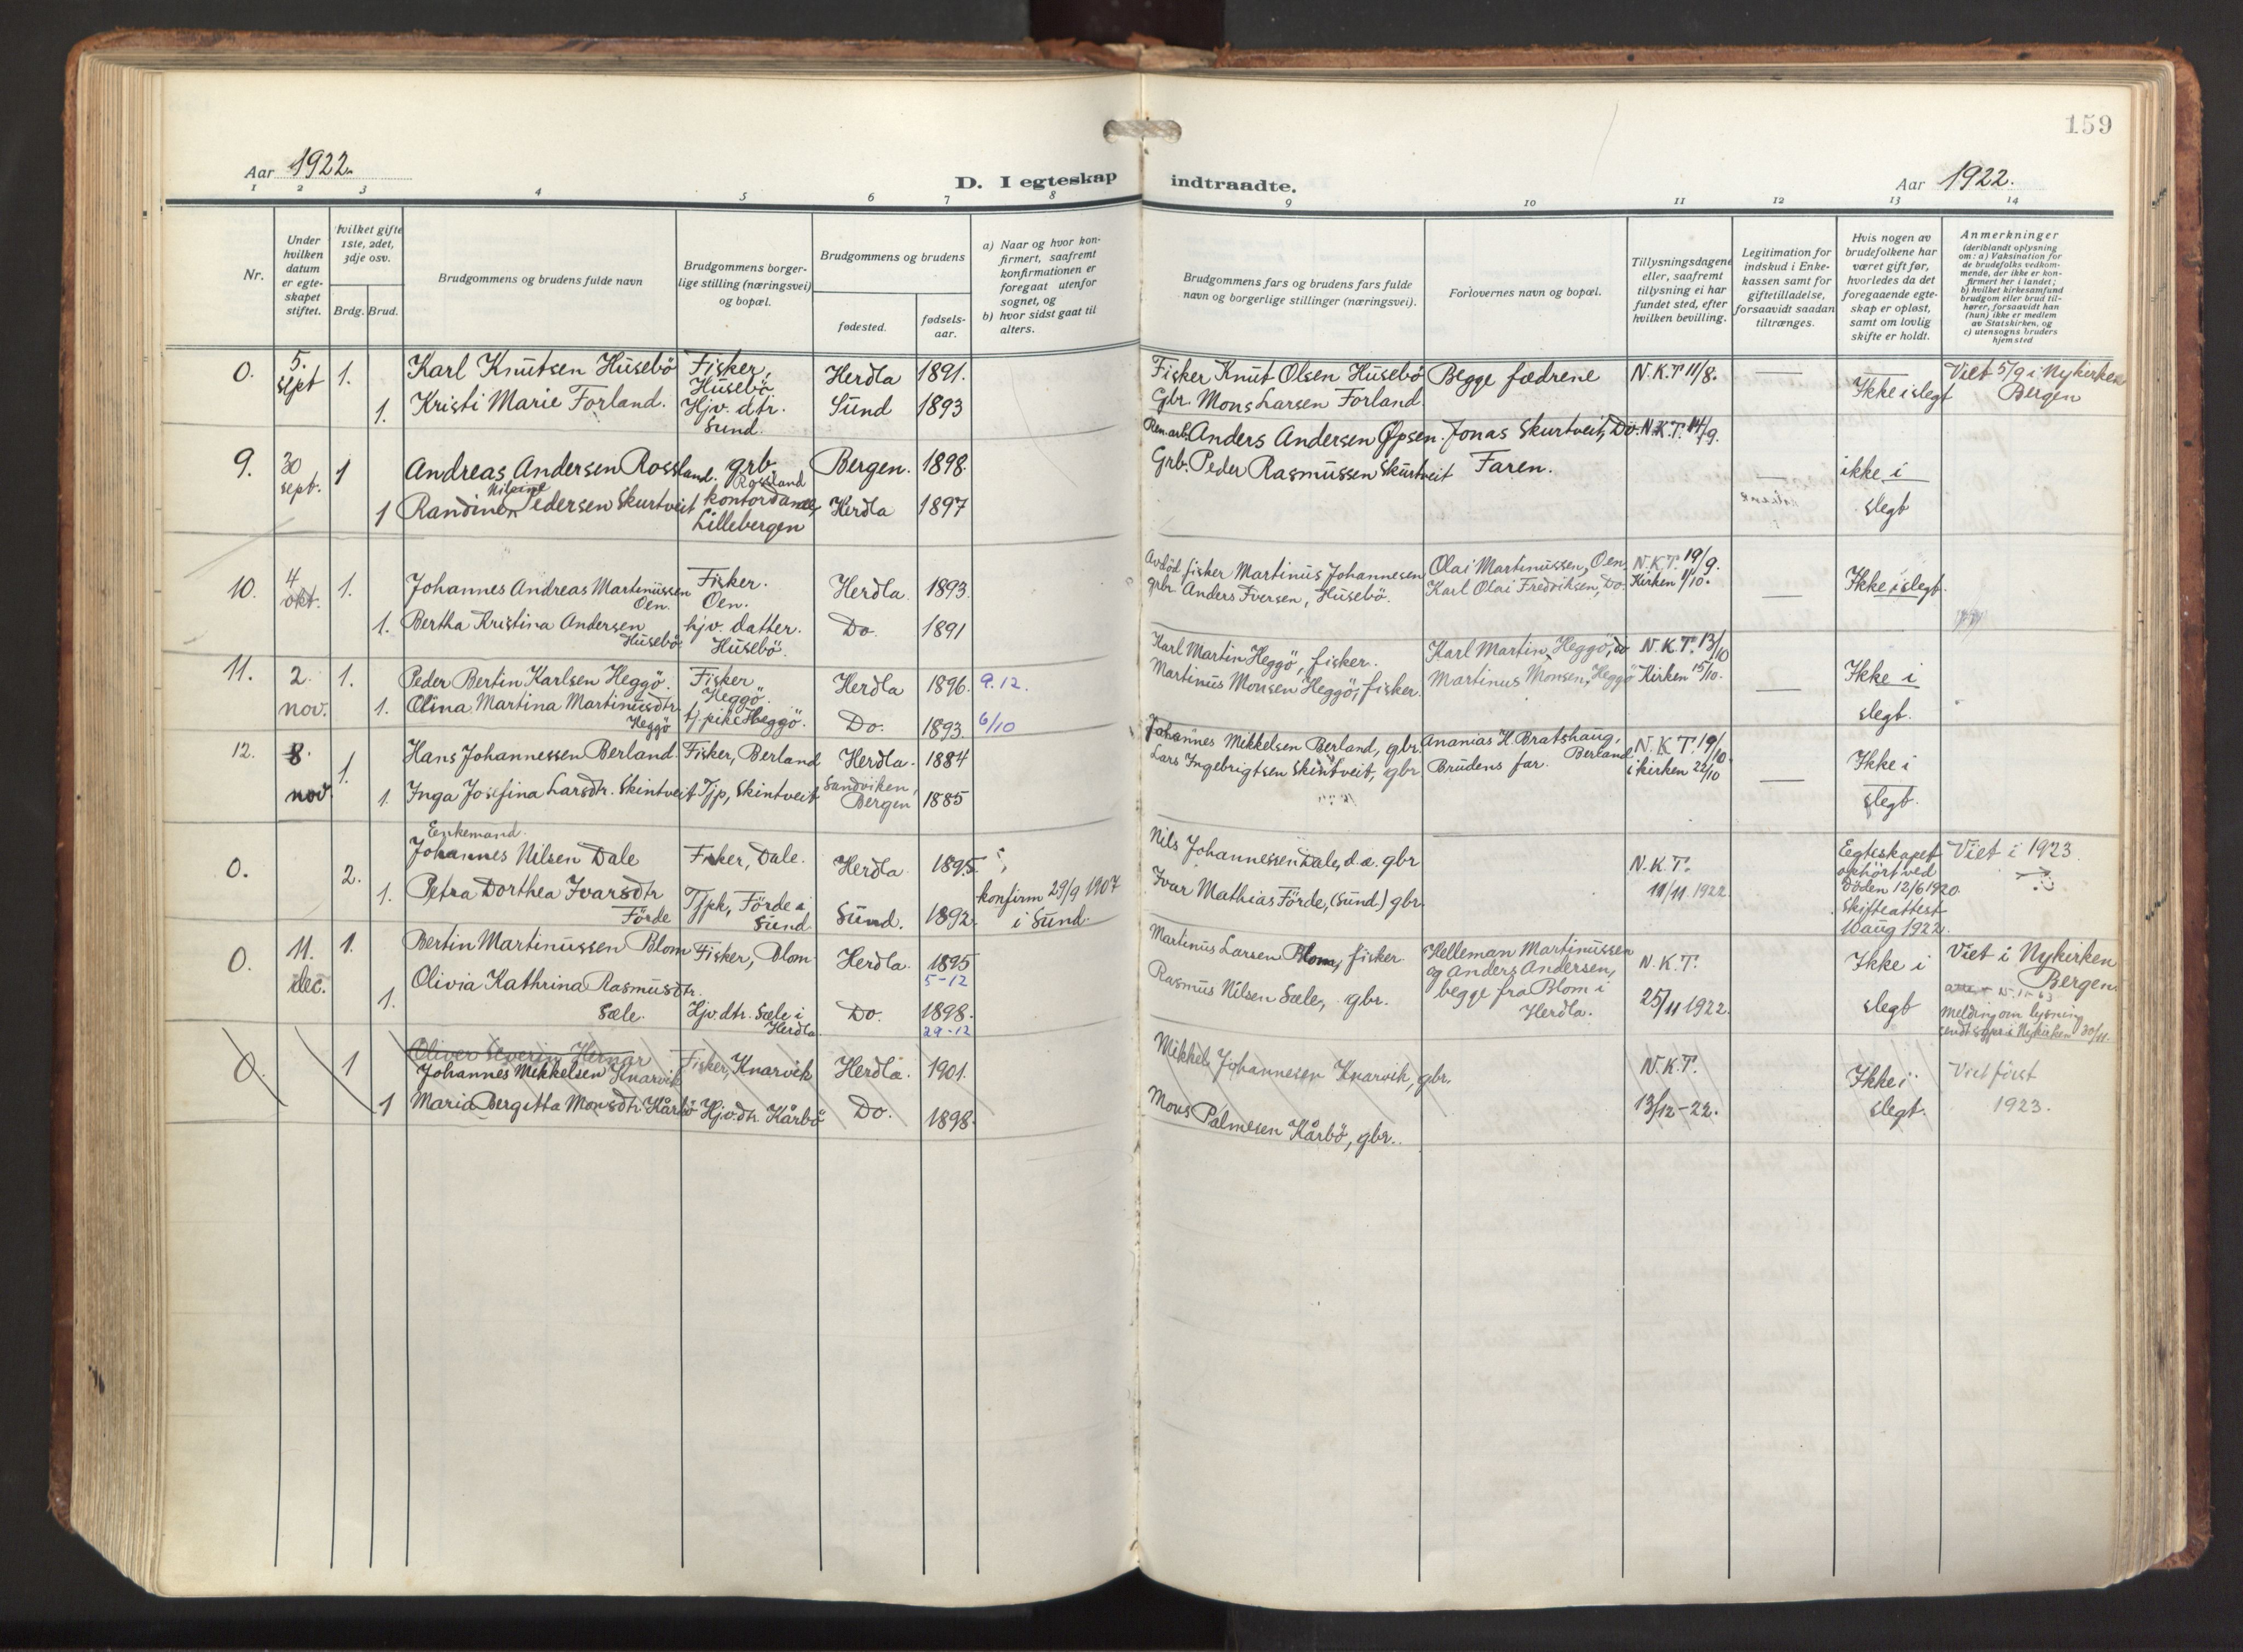 159
Aar 1922.
D. I egteskap indtraadte.
Aar 1922.
1 2 3 4 5 6 7 8 9 10 11 12 13 14
Nr.
Under hvilken datum er egteskapet stiftet.
Hvilket gifte 1ste, 2det, 3dje osv.
Brdg. Brud.
Brudgommens og brudens fulde navn
Brudgommens borgerlige stilling (næringsvei) og bopæl.
Brudgommens og brudens
fødested.
fødselsaar.
a) Naar og hvor konfirmert, saafremt konfirmationen er foregaat utenfor sognet, og
b) hvor sidst gaat til alters.
Brudgommens fars og brudens fars fulde navn og borgerlige stillinger (næringsvei).
Forlovernes navn og bopæl.
Tillysningsdagene eller, saafremt tillysning ei har fundet sted, efter hvilken bevilling.
Legitimation for indskud i Enkekassen samt for giftetilladelse, forsaavidt saadan tiltrænges.
Hvis nogen av brudefolkene har været gift før, hvorledes da det foregaaende egteskap er opløst, samt om lovlig skifte er holdt.
Anmerkninger (deriblandt oplysning om: a) Vaksination for de brudefolks vedkommende, der ikke er konfirmert her i landet; b) hvilket kirkesamfund brudgom eller brud tilhører, forsaavidt han (hun) ikke er medlem av Statskirken, og c) utensogns bruders hjemsted
0. 5. sept 1. Karl Knutsen Husebö Fisker, Husebö Herdla 1891.
1. Kristi Marie Forland. Hjv. dtr. Sund. Sund 1893
Fisker Knut Olsen Husebö Begge fædrene N.K.T. 11/8. Ikke i slegt Viet 5/9 i Nykirken Bergen
Gbr. Mons Larsen Forland
9. 30 sept. 1 Andreas Andersen Rossland. grb. Rossland Bergen. 1898.
1 Randine Pedersen Skurtveit kontordame, Lillebergen Herdla 1897
Anders Andersen Øpsen. Jonas Skurtveit, Do. N.K.T. 14/9.
Grb. Peder Rasmussen Skurtveit Faren. ikke i slegt
10. 4 okt. 1. Johannes Andreas Martinussen Oen. Fisker. Oen. Herdla. 1893.
1. Bertha Kristina Andersen Husebö hjv. datter. Husebö. Do. 1891
Avdöd fisker Martinus Johannesen Olai Martinussen, Oen, N.K.T. 19/9.
grb. Anders Iversen, Husebö. Karl Olai Fredriksen, Do. Kirken 1/10. Ikke i slegt.
11. 2. nov. 1. Peder Bertin Karlsen Heggö. Fisker Heggö. Herdla 1896. 9.12.
1. Olina Martina Martinusdtr. Heggö tj. pike Heggö. Do. 1893. 6/10
Karl Martin Heggö, fisker. Karl Martin Heggö, do N.K.T. 13/10
Martinus Monsen Heggö, fisker. Martinus Monsen, Heggö Kirken 15/10. Ikke i slegt.
12. 8. nov. 1. Hans Johannessen Berland. Fisker, Berland Herdla. 1884
1. Inga Josefina Larsdtr. Skintveit Tjp, Skintveit Sandviken, Bergen 1885
Johannes Mikkelsen Berland, gbr. Ananias H. Bratshaug, Berland N.K.T. 19/10.
Lars Ingebrigtsen Skintveit, gbr Brudens far. i kirken 22/10 Ikke i slegt.
0. 2. Enkemand. Johannes Nilsen Dale Fisker, Dale. Herdla 1895.
1. Petra Dorthea Ivarsdtr Förde Tjpk, Förde i Sund Sund. 1892. konfirm 29/9 1907 i Sund.
Nils Johannessen Dale, d.æ. gbr N.K.T. 11/11 1922.
Ivar Mathias Förde, (Sund.) gbr
Egteskapet ophört ved Döden 12/6 1920. Skifteattest 10 aug 1922. Viet i 1923.
0. 11. dec. 1. Bertin Martinussen Blom Fisker, Blom Herdla. 1895 5-12
1. Olivia Kathrina Rasmusdtr. Sæle. Hjv. dtr. Sæle i Herdla Do. 1898. 29-12
Martinus Larsen Blom, fisker Helleman Martinussen og Anders Andersen, begge fra Blom i Herdla. N.K.T. 25/11 1922.
Rasmus Nilsen Sæle, gbr.
Ikke i slegt Viet i Nykirken Bergen.
Melding om lysning sendt sogpr i Nykirken 30/11.
0. 1 Oliver Severin Hernar
Johannes Mikkelsen Knarvik Fisker, Knarvik Herdla. 1901.
1 Maria Bergitta Monsdtr. Kårbö Hjv. dtr. Kårbö Do. 1898.
Mikkel Johannesen Knarvik, gbr. N.K.T. 13/12-22. Ikke i slegt. Viet först 1923.
Mons Palmesen Kårbö, gbr.